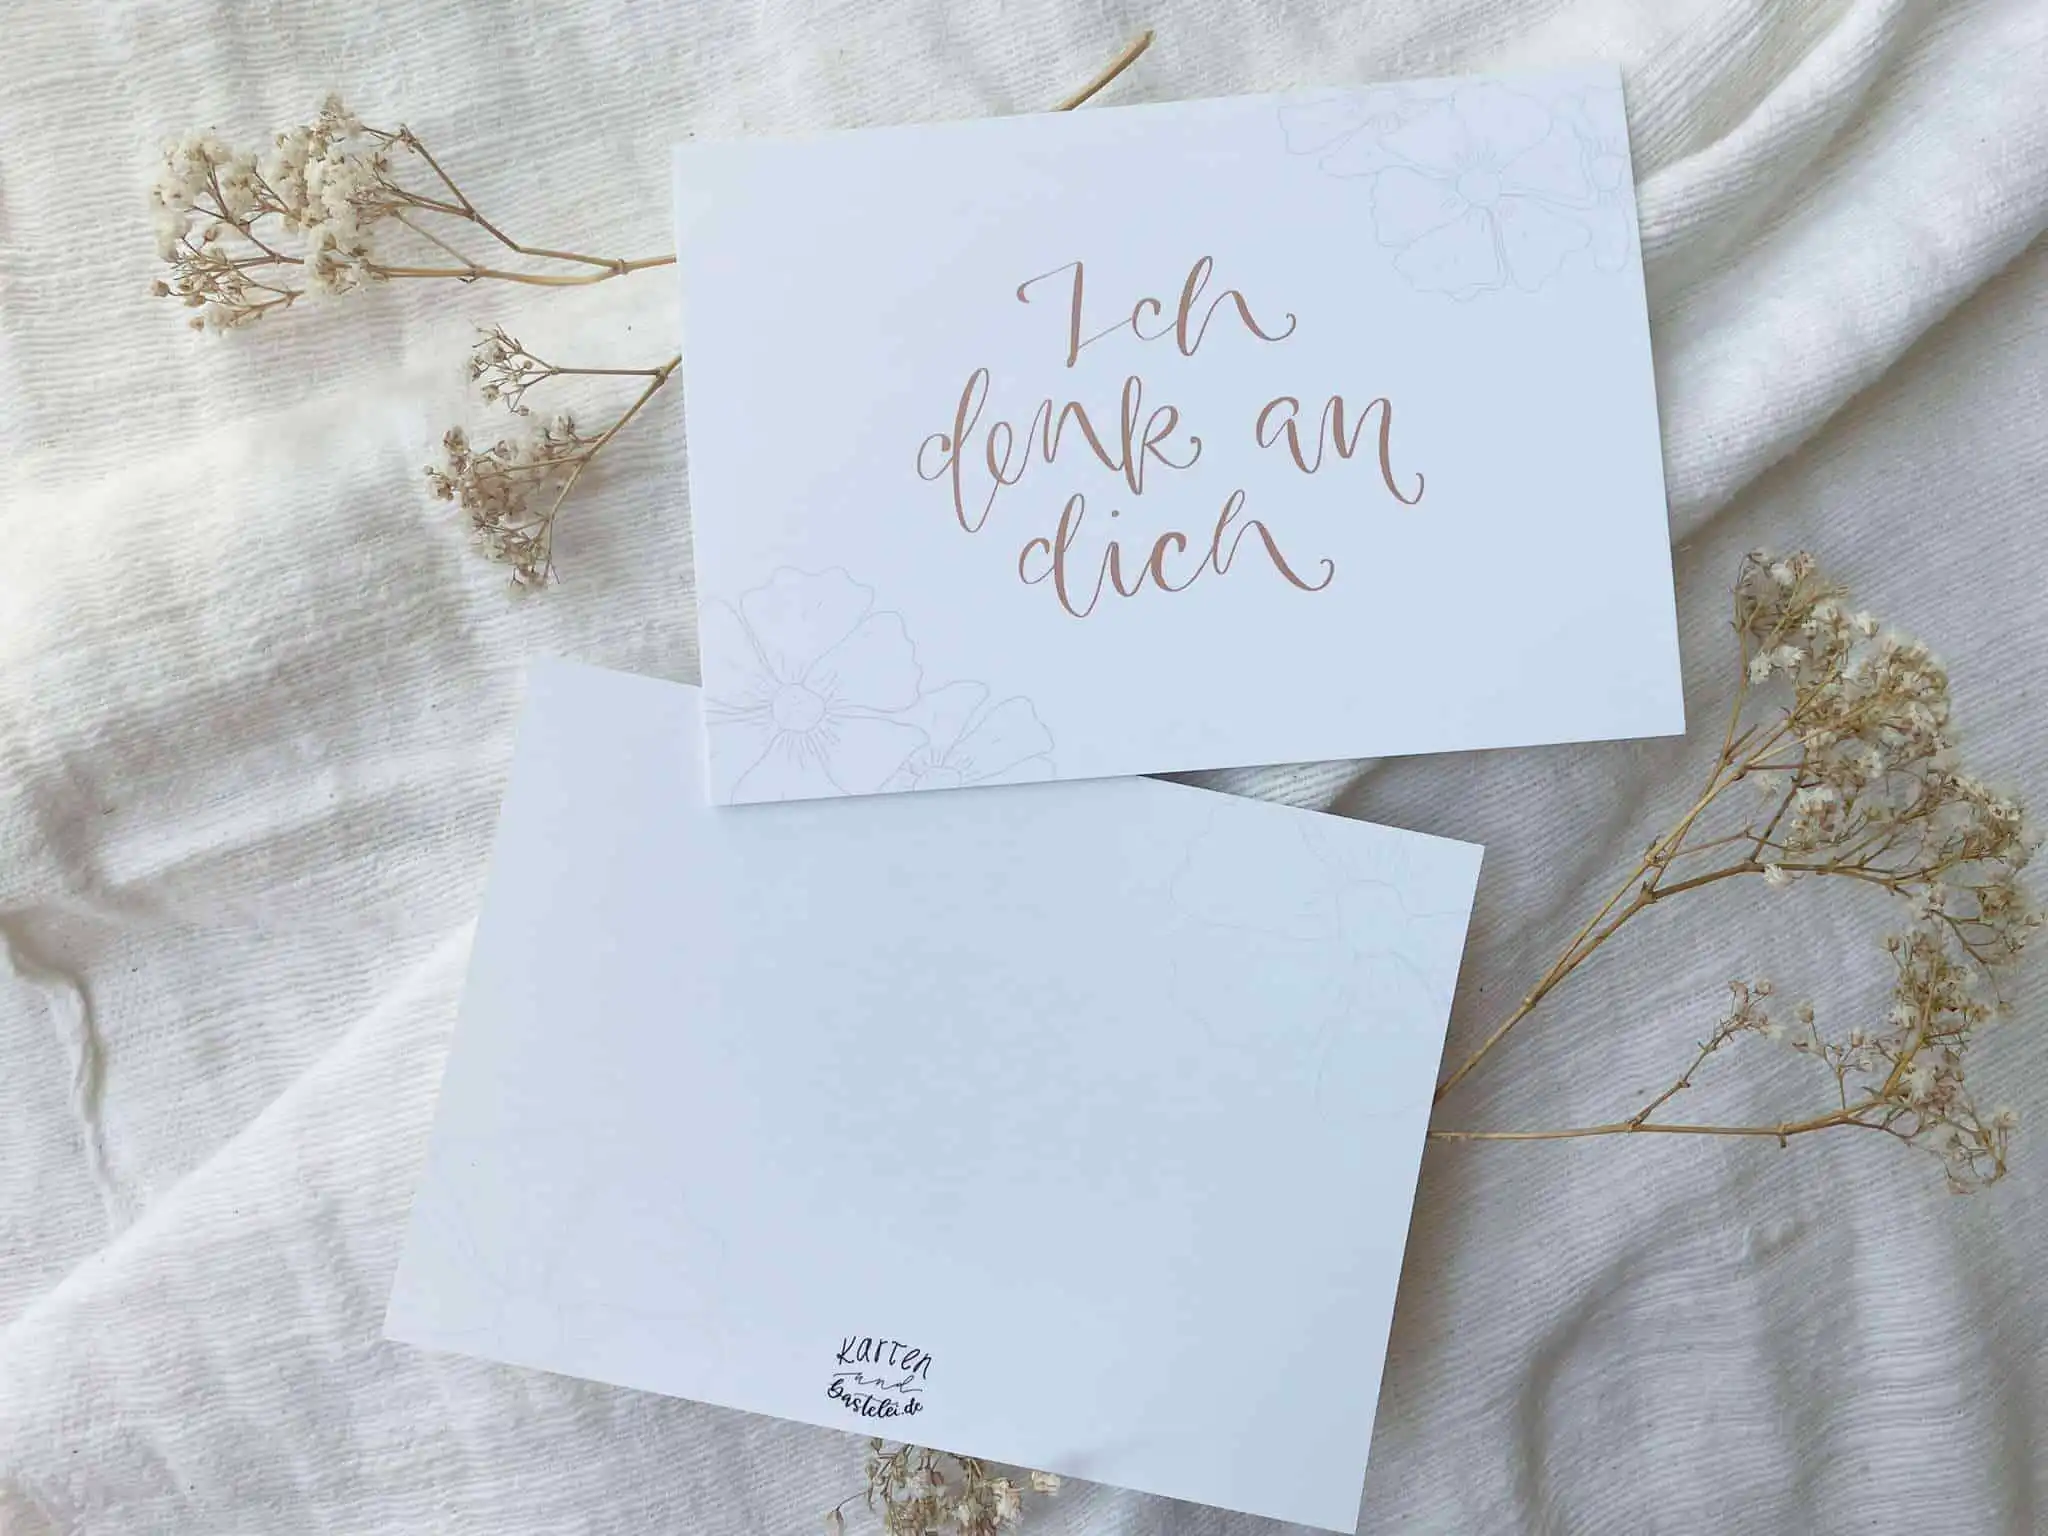 Ich
denk an
dich
Karten
and
bastelei.de